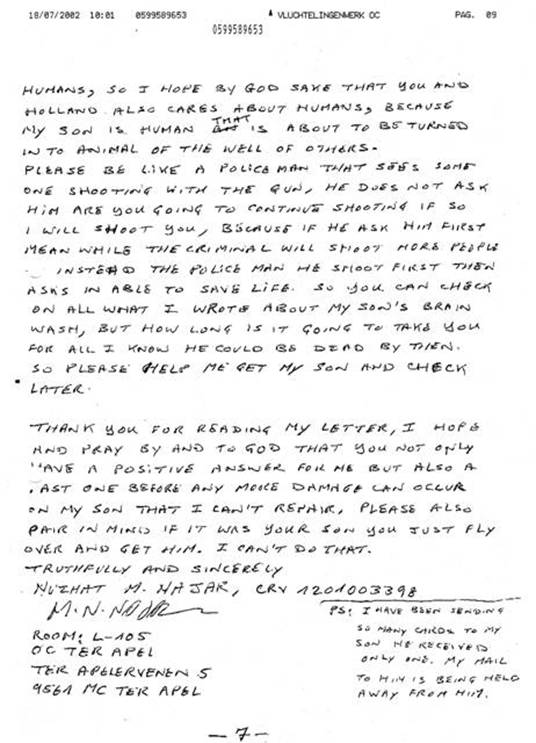 18/07/2002 10:01 0599589653 VLUCHTELINGENWERK OC PAG. 09
0599589653
HUMANS, SO I HOPE BY GOD SAKE THAT YOU AND
HOLLAND ALSO CARES ABOUT HUMANS, BECAUSE
MY SON IS HUMAN THAT IS ABOUT TO BE TURNED
IN TO ANIMAL OF THE WELL OF OTHERS.
PLEASE BE LIKE A POLICE MAN THAT SEES SOME
ONE SHOOTING WITH THE GUN, HE DOES NOT ASK
HIM ARE YOU GOING TO CONTINUE SHOOTING IF SO
I WILL SHOOT YOU, BECAUSE IF HE ASK HIM FIRST
MEAN WHILE THE CRIMINAL WILL SHOOT MORE PEOPLE
INSTEAD THE POLICE MAN HE SHOOT FIRST THEN
ASKS IN ABLE TO SAVE LIFE. SO YOU CAN CHECK
ON ALL WHAT I WROTE ABOUT MY SON'S BRAIN
WASH, BUT HOW LONG IS IT GOING TO TAKE YOU
FOR ALL I KNOW HE COULD BE DEAD BY THEN.
SO PLEASE HELP ME GET MY SON AND CHECK
LATER.
THANK YOU FOR READING MY LETTER, I HOPE
AND PRAY BY AND TO GOD THAT YOU NOT ONLY
AVE A POSITIVE ANSWER FOR ME BUT ALSO A
AST ONE BEFORE ANY MORE DAMAGE CAN OCCUR
ON MY SON THAT I CAN'T REPAIR, PLEASE ALSO
PAIR IN MIND IF IT WAS YOUR SON YOU JUST FLY
OVER AND GET HIM. I CAN'T DO THAT.
TRUTHFULLY AND SINCERELY
NUZHAT M. NAJAR, CRV 1201003398
M. N. NAJAR
ROOM: L-105
OC TER APEL
TER APELERVENEN 5
9561 MC TER APEL
PS: I HAVE BEEN SENDING
SO MANY CARDS TO MY
SON HE RECEIVED
ONLY ONE. MY MAIL
TO HIM IS BEING HELD
AWAY FROM HIM.
-7-